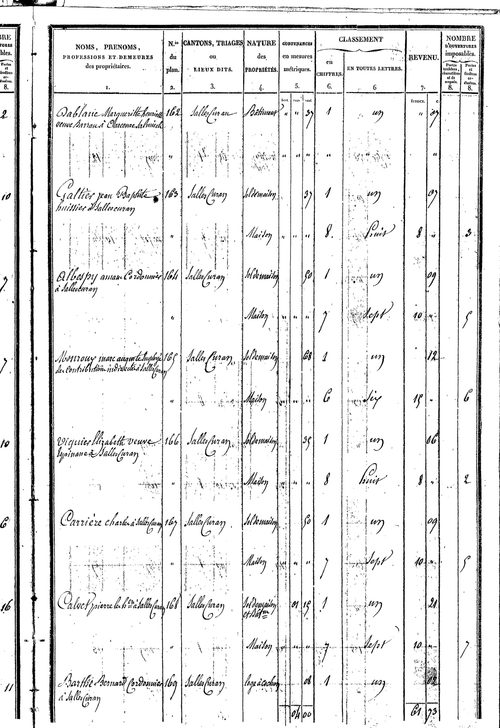 NOMS, PRENOMS,
PROFESSIONS ET DEMEURES
des propriétaires.
N.os
du
plan.
CANTONS, TRIAGES
ou
LIEUX DITS.
NATURE
des
PROPRIÉTÉS.
CONTENANCES
en mesures
métriques.
CLASSEMENT
en
CHIFFRES.
EN TOUTES LETTRES.
REVENU.
NOMBRE
D'OUVERTURES
imposables.
1. 2. 3. 4. 5. 6. 6 7. 8. 8.
francs. c
Marguerite 162 Salles Curan Bâtiment " " 37 1 un " 07
veuve
Galtier jean Baptiste 163 Salles Curan Sol de maison 37 1 un 07
huissier à Salles curan
" Maison " " " 8. huit 8 " 3
Albespy Cordonnier 164 Salles Curan Sol de maison 50 1 un 09
à Salles Curan
" Maison " " " 7 Sept 10 " 5
Monrouy marc auguste 165 Salles Curan Sol de maison 68 1 un 12
à Salles Curan
" Maison " " " 6 Six 15 " 6
Viguier Elizabeth veuve 166 Salles Curan Sol de maison 35 1 un 06
à Salles Curan
" Maison " " " 8 huit 8 " 2
Carrière charles à Salles Curan 167 Salles Curan Sol de maison 50 1 un 09
" Maison " " " 7 Sept 10 " 5
Calvet pierre à Salles Curan 168 Salles Curan Sol de maison 01 15 1 un 21
" Maison " " " 7 Sept 10 " 7
Barthe Bernard Cordonnier 169 Salles Curan 08 1 un 02
à Salles Curan
04 00 61 73